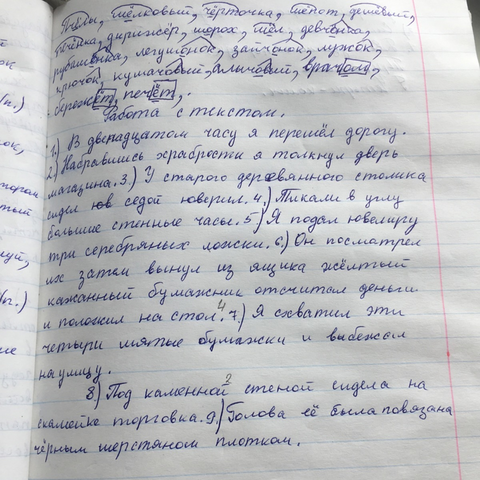 шёлковый, чёрточка, шёпот, дешёвый,
печёнка, дирижёр, шорох, шёл, девчонка,
рубашонка, лягушонок, зайчонок, лужок,
крючок, кумачовый, алычовый, врачом,
бережёт, печёт.
Работа с текстом.
1.) В двенадцатом часу я перешёл дорогу.
2) Набравшись храбрости я толкнул дверь
магазина. 3.) У старого деревянного столика
сидел седой ювелир. 4.) Тикали в углу
большие стенные часы. 5) Я подал ювелиру
три серебряных ложки. 6.) Он посмотрел
их затем вынул из ящика жёлтый
кажанный бумажник отсчитал деньги
и положил на стол.4 7) Я схватил эти
четыри мятые бумажки и выбежал
на улицу.
8) Под каменной2 стеной сидела на
скамейке торговка. 9.) Голова её была повязана
чёрным шерстяном платком.